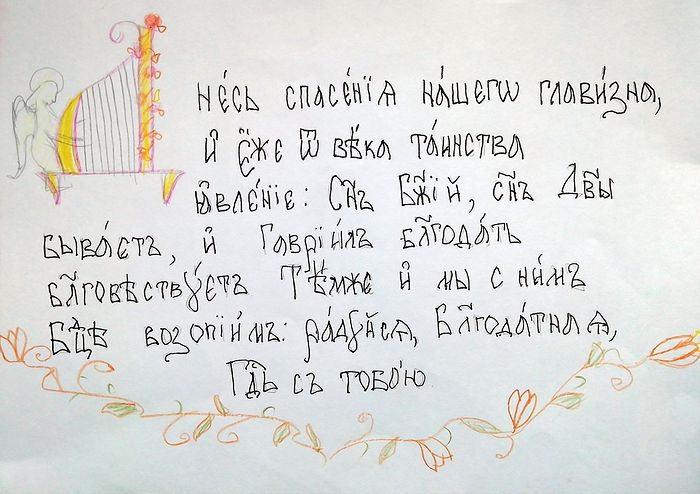 не́сь спасе́нїѧ на́шегѡ глави́зна,
и҆ є҆́же ѿ вѣ́ка та́инства
ꙗ҆вле́нїе: Сн҃ъ Бж҃їй, сн҃ъ Дв҃ы
быва́етъ, и҆ Гаврїи́лъ бл҃года́ть
бл҃говѣству́етъ Тѣ́мже и҆ мы с ни́мъ
Бц҃ѣ возопїи́мъ: ра́дуйсѧ, Бл҃года́тнаѧ,
Гд҇ь съ тобо́ю